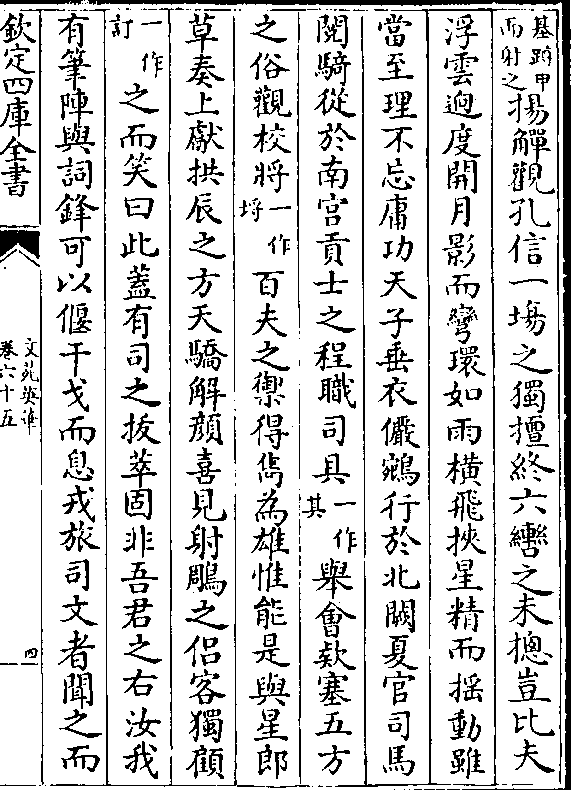 基蹲甲而射之揚觶觀孔信一塲之獨擅終六轡之未摠豈比夫
浮雲逈度開月影而彎環如雨橫飛挾星精而揺動雖
當至理不忘庸功天子垂衣儼鵷行於北闕夏官司馬
閱騎從於南宫貢士之程職司具一作其舉會欵塞五方
之俗觀校將一作埒百夫之禦得雋為雄惟能是與星郎
草奏上獻拱辰之方天驕解顔喜見射鵰之侣客獨顧
一作訂之而笑曰此蓋有司之拔萃固非吾君之右汝我
有筆陣與詞鋒可以偃干戈而息戎旅司文者聞之而
欽定四庫全書
文苑英華
卷六十五
四